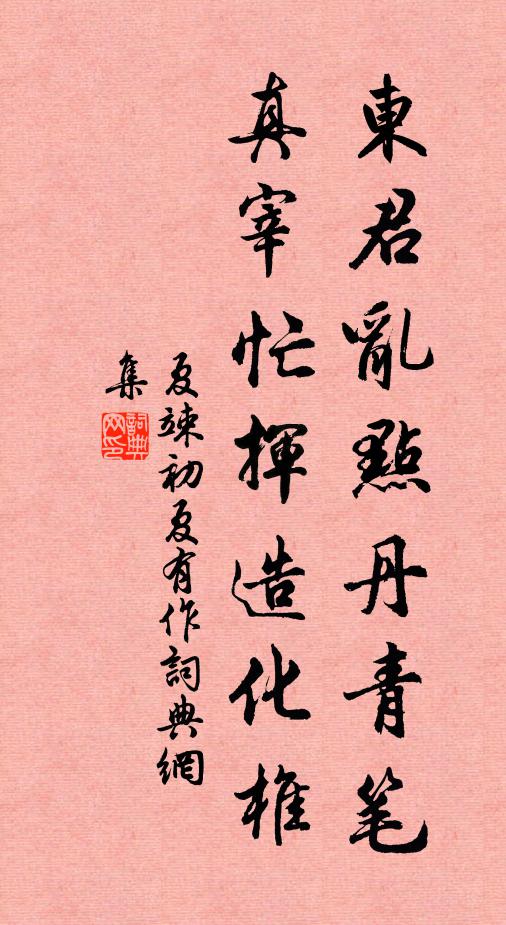 東君亂點丹青笔
真宰忙揮造化椎
夏竦初夏有作詞典網
集
詞典
网印